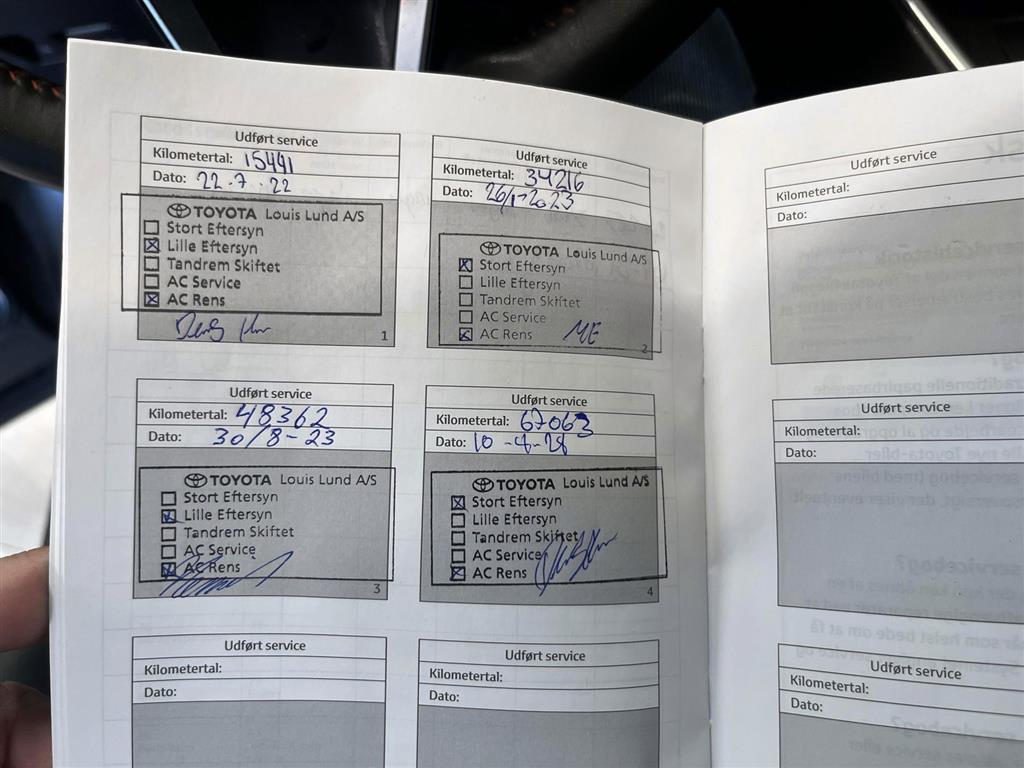 Udført service
Kilometertal: 15441
Dato: 22.7.22
TOYOTA Louis Lund A/S
Stort Eftersyn
Lille Eftersyn
Tandrem Skiftet
AC Service
AC Rens
1
Udført service
Kilometertal: 34216
Dato: 26/1-2023
TOYOTA Louis Lund A/S
Stort Eftersyn
Lille Eftersyn
Tandrem Skiftet
AC Service
AC Rens ME
2
Udført service
Kilometertal: 48362
Dato: 30/8-23
TOYOTA Louis Lund A/S
Stort Eftersyn
Lille Eftersyn
Tandrem Skiftet
AC Service
AC Rens
3
Udført service
Kilometertal: 67063
Dato:
TOYOTA Louis Lund A/S
Stort Eftersyn
Lille Eftersyn
Tandrem Skiftet
AC Service
AC Rens
4
Udført service
Kilometertal:
Dato:
Udført service
Kilometertal:
Dato:
Udført service
Kilometertal:
Dato:
Udført service
Kilometertal:
Dato:
Udført service
Kilometertal:
Dato: